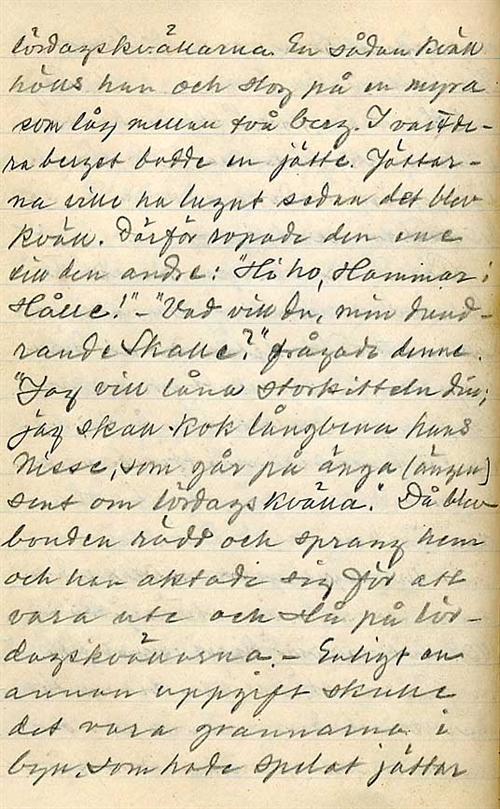 lördagskvällarna. En sådan kväll
hölls han och slog på en myra
som låg mellan två berg. I vart de-
ra berget bodde en jätte. Jättar-
na ville ha lugnt sedan det blev
kväll. Därför ropade den ene
till den andre: "Hi ho, Hammar i
Hålle!" - "Vad vill du, min dund-
rande Skalle?" frågade denne.
"Jag vill låna storkitteln din;
jag skall kok långbena hans
Nisse, som går på änga (ängen)
sent om lördagskvälla." Då blev
bonden rädd och sprang hem
och han aktade sig för att
vara ute och slå på lör-
dagskvällarna. - Enligt en
annan uppgift skulle
det vara grannarna i
byn, som hade spelat jättar